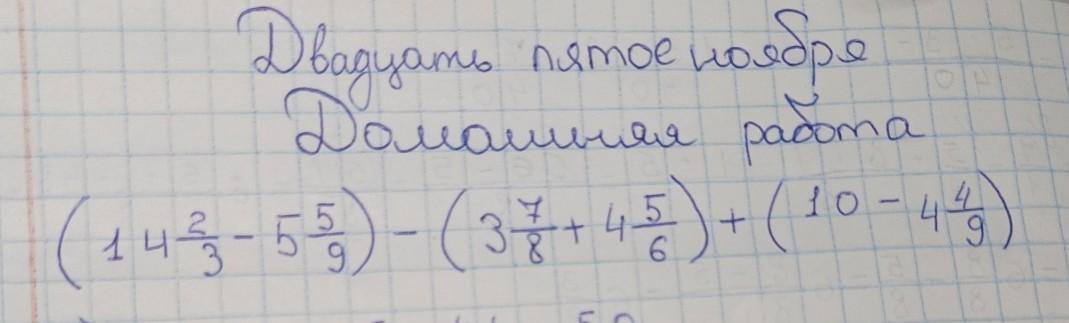 Двадцать пятое ноября
Домашняя работа
(14 2/3 - 5 5/9) - (3 7/8 + 4 5/6) + (10 - 4 4/9)